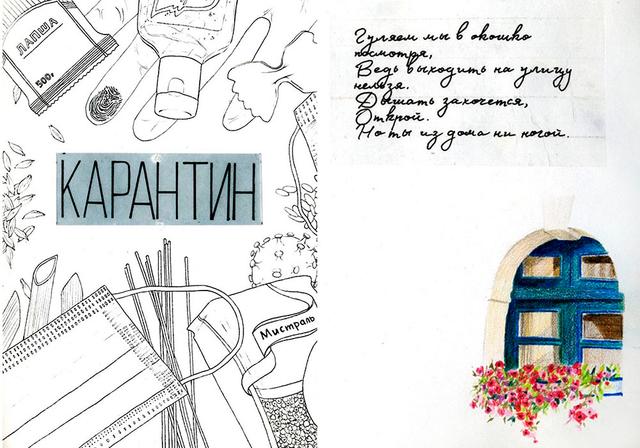 ЛАПША
500г
КАРАНТИН
Мистраль
Гуляем мы в окошко
посмотря,
Ведь выходить на улицу
нельзя.
Дышать захочется,
Открой.
Но ты из дома ни ногой.